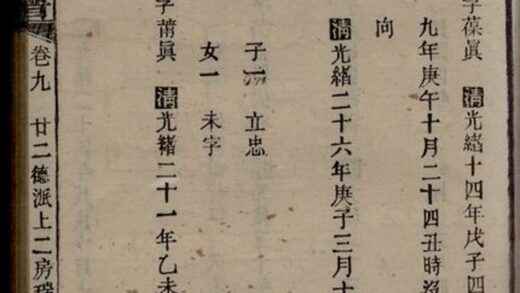 字葆眞 清光緒十四年戊子四
九年庚午十月二十四丑時歿
向
清光緒二十六年庚子三月十
子一 立忠
女一 未字
字莆眞 清光緒二十一年乙未
卷九 廿二德派上二房瑞